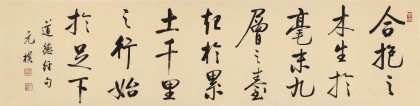 合抱之
木生於
毫末九
層之臺
起於累
土千里
之行始
於足下
道德經句
元樸